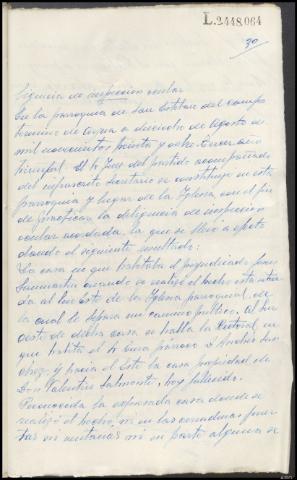 L.2448,064
30
ligencia de inspección ocular
En la parroquia de San Esteban del Campo
termino de Arzua a dieciocho de Agosto de
mil novecientos treinta y ocho. Tercer año
triunfal. El Sr Juez del partido acompañado
del infrascrito Secretario se constituyó en esta
parroquia y lugar de la Iglesia con el fin
de practicar la diligencia de inspección
ocular acordada, la que se llevó a efecto
dando el siguiente resultado:
La casa en que habitaba el perjudicado
cuando se realizó el hecho esta situa
da al Este de la Iglesia parroquial, de
la cual le separa un camino publico. Al
oeste de dicha casa se halla la Rectoral en
que habita el Sr Cura párroco D. Andrés San
chez, y hacia el Este la casa propiedad de
Don Valentin Salmonte, hoy fallecido.
Reconocida la expresada casa donde se
realizó el hecho, ni en las cerraduras puer
tas ni ventanas ni en parte alguna se